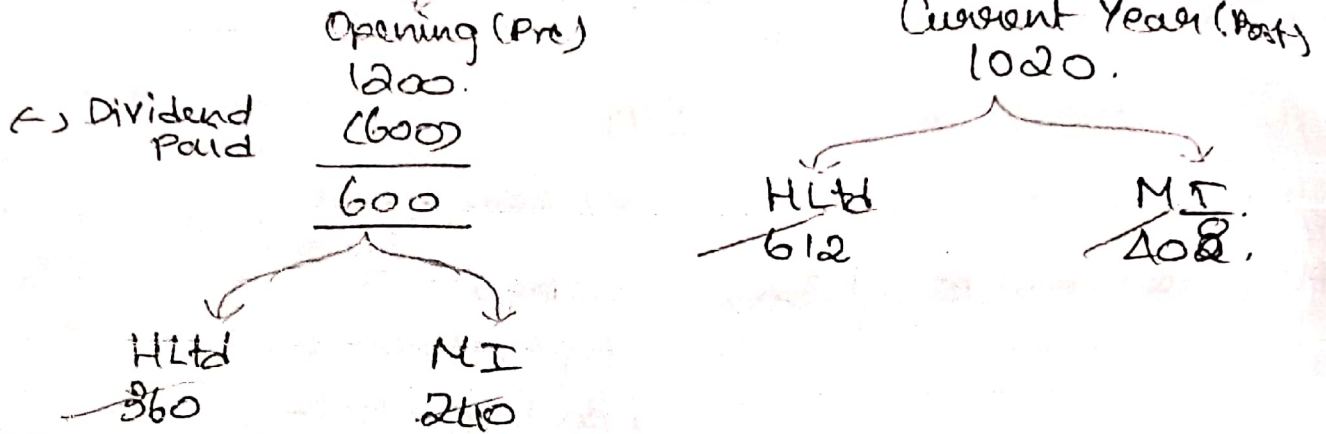 Opening (Pre)
1200.
(-) Dividend Paid (600)
600
HLtd MI
360 240
Current Year (Post)
1020.
HLtd MI.
612 408.